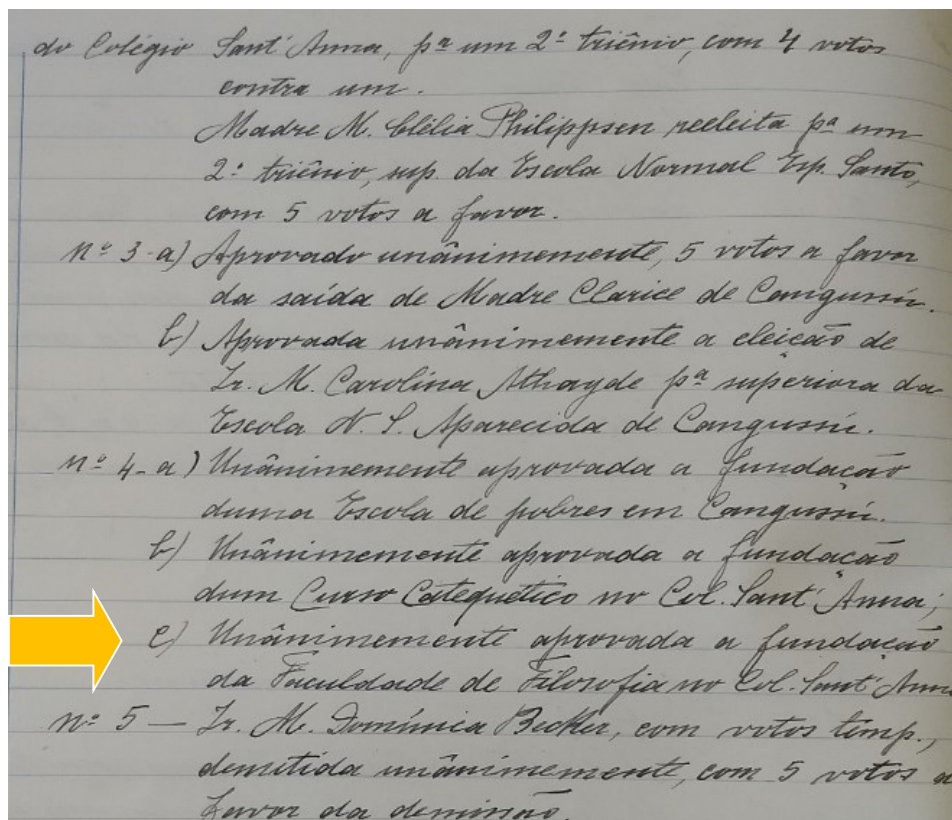 do Colégio Sant'Anna, pª um 2º triênio, com 4 votos
contra um.
Madre M. Clélia Philippsen reeleita pª um
2º triênio, sup. da Escola Normal Esp. Santo,
com 5 votos a favor.
nº 3-a) Aprovado unânimemente, 5 votos a favor
da saída de Madre Clarice de Cangussú.
b) Aprovada unânimemente a eleição de
Ir. M. Carolina Athayde pª superiora da
Escola N. S. Aparecida de Cangussú.
nº 4-a) Unânimemente aprovada a fundação
duma Escola de pobres em Cangussú.
b) Unânimemente aprovada a fundação
dum Curso Catequético no Col. Sant'Anna;
c) Unânimemente aprovada a fundação
da Faculdade de Filosofia no Col. Sant'Anna
nº 5 — Ir. M. Domínica Becker, com votos temp.,
demitida unânimemente, com 5 votos a
favor da demissão.